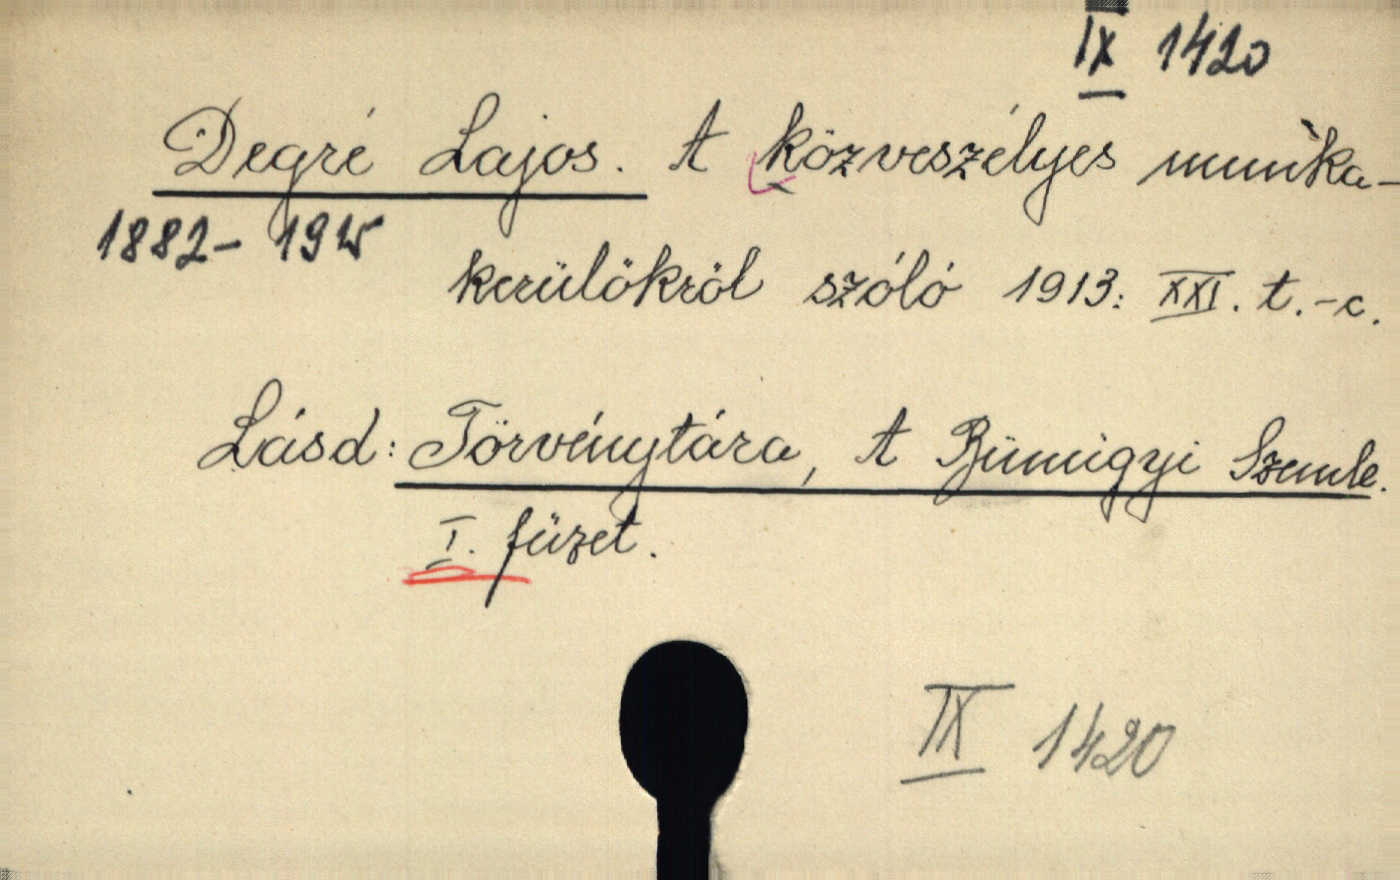 IX 1420
Degré Lajos. A közveszélyes munka-
1882- 1915
kerülőkről szóló 1913: XXI. t.-c.
Lásd: Törvénytára, A Bünügyi Szemle.
I. füzet.
IX 1420